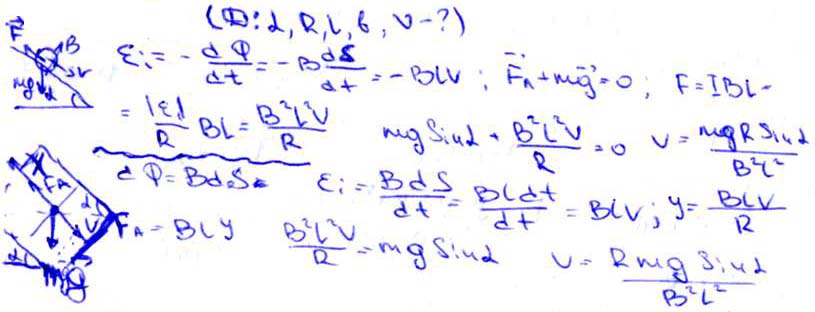 (D: α, R, L, B, V-?)
F B mg α εᵢ = - dΦ/dt = - B dS/dt = - BLV ; F⃗ₐ + mg⃗ = 0 ; F = IBL -
= |ε|/R BL = B²L²V/R mg Sin α + B²L²V/R = 0 V = mgR Sin α / B²L²
dΦ = BdS εᵢ = BdS/dt = BLdt/dt = BLV ; y = BLV/R
Fₐ = BLy B²L²V/R = mg Sin α V = Rmg Sin α / B²L²
Fₐ α V α mg